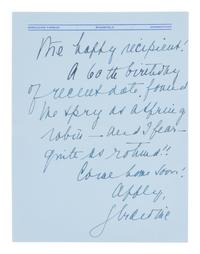 Me happy recipient!
A 60th birthday
of recent date, found
me spry as a spring
robin — and I fear
quite as rotund!!
Come home soon!
Apply,
Geraldine